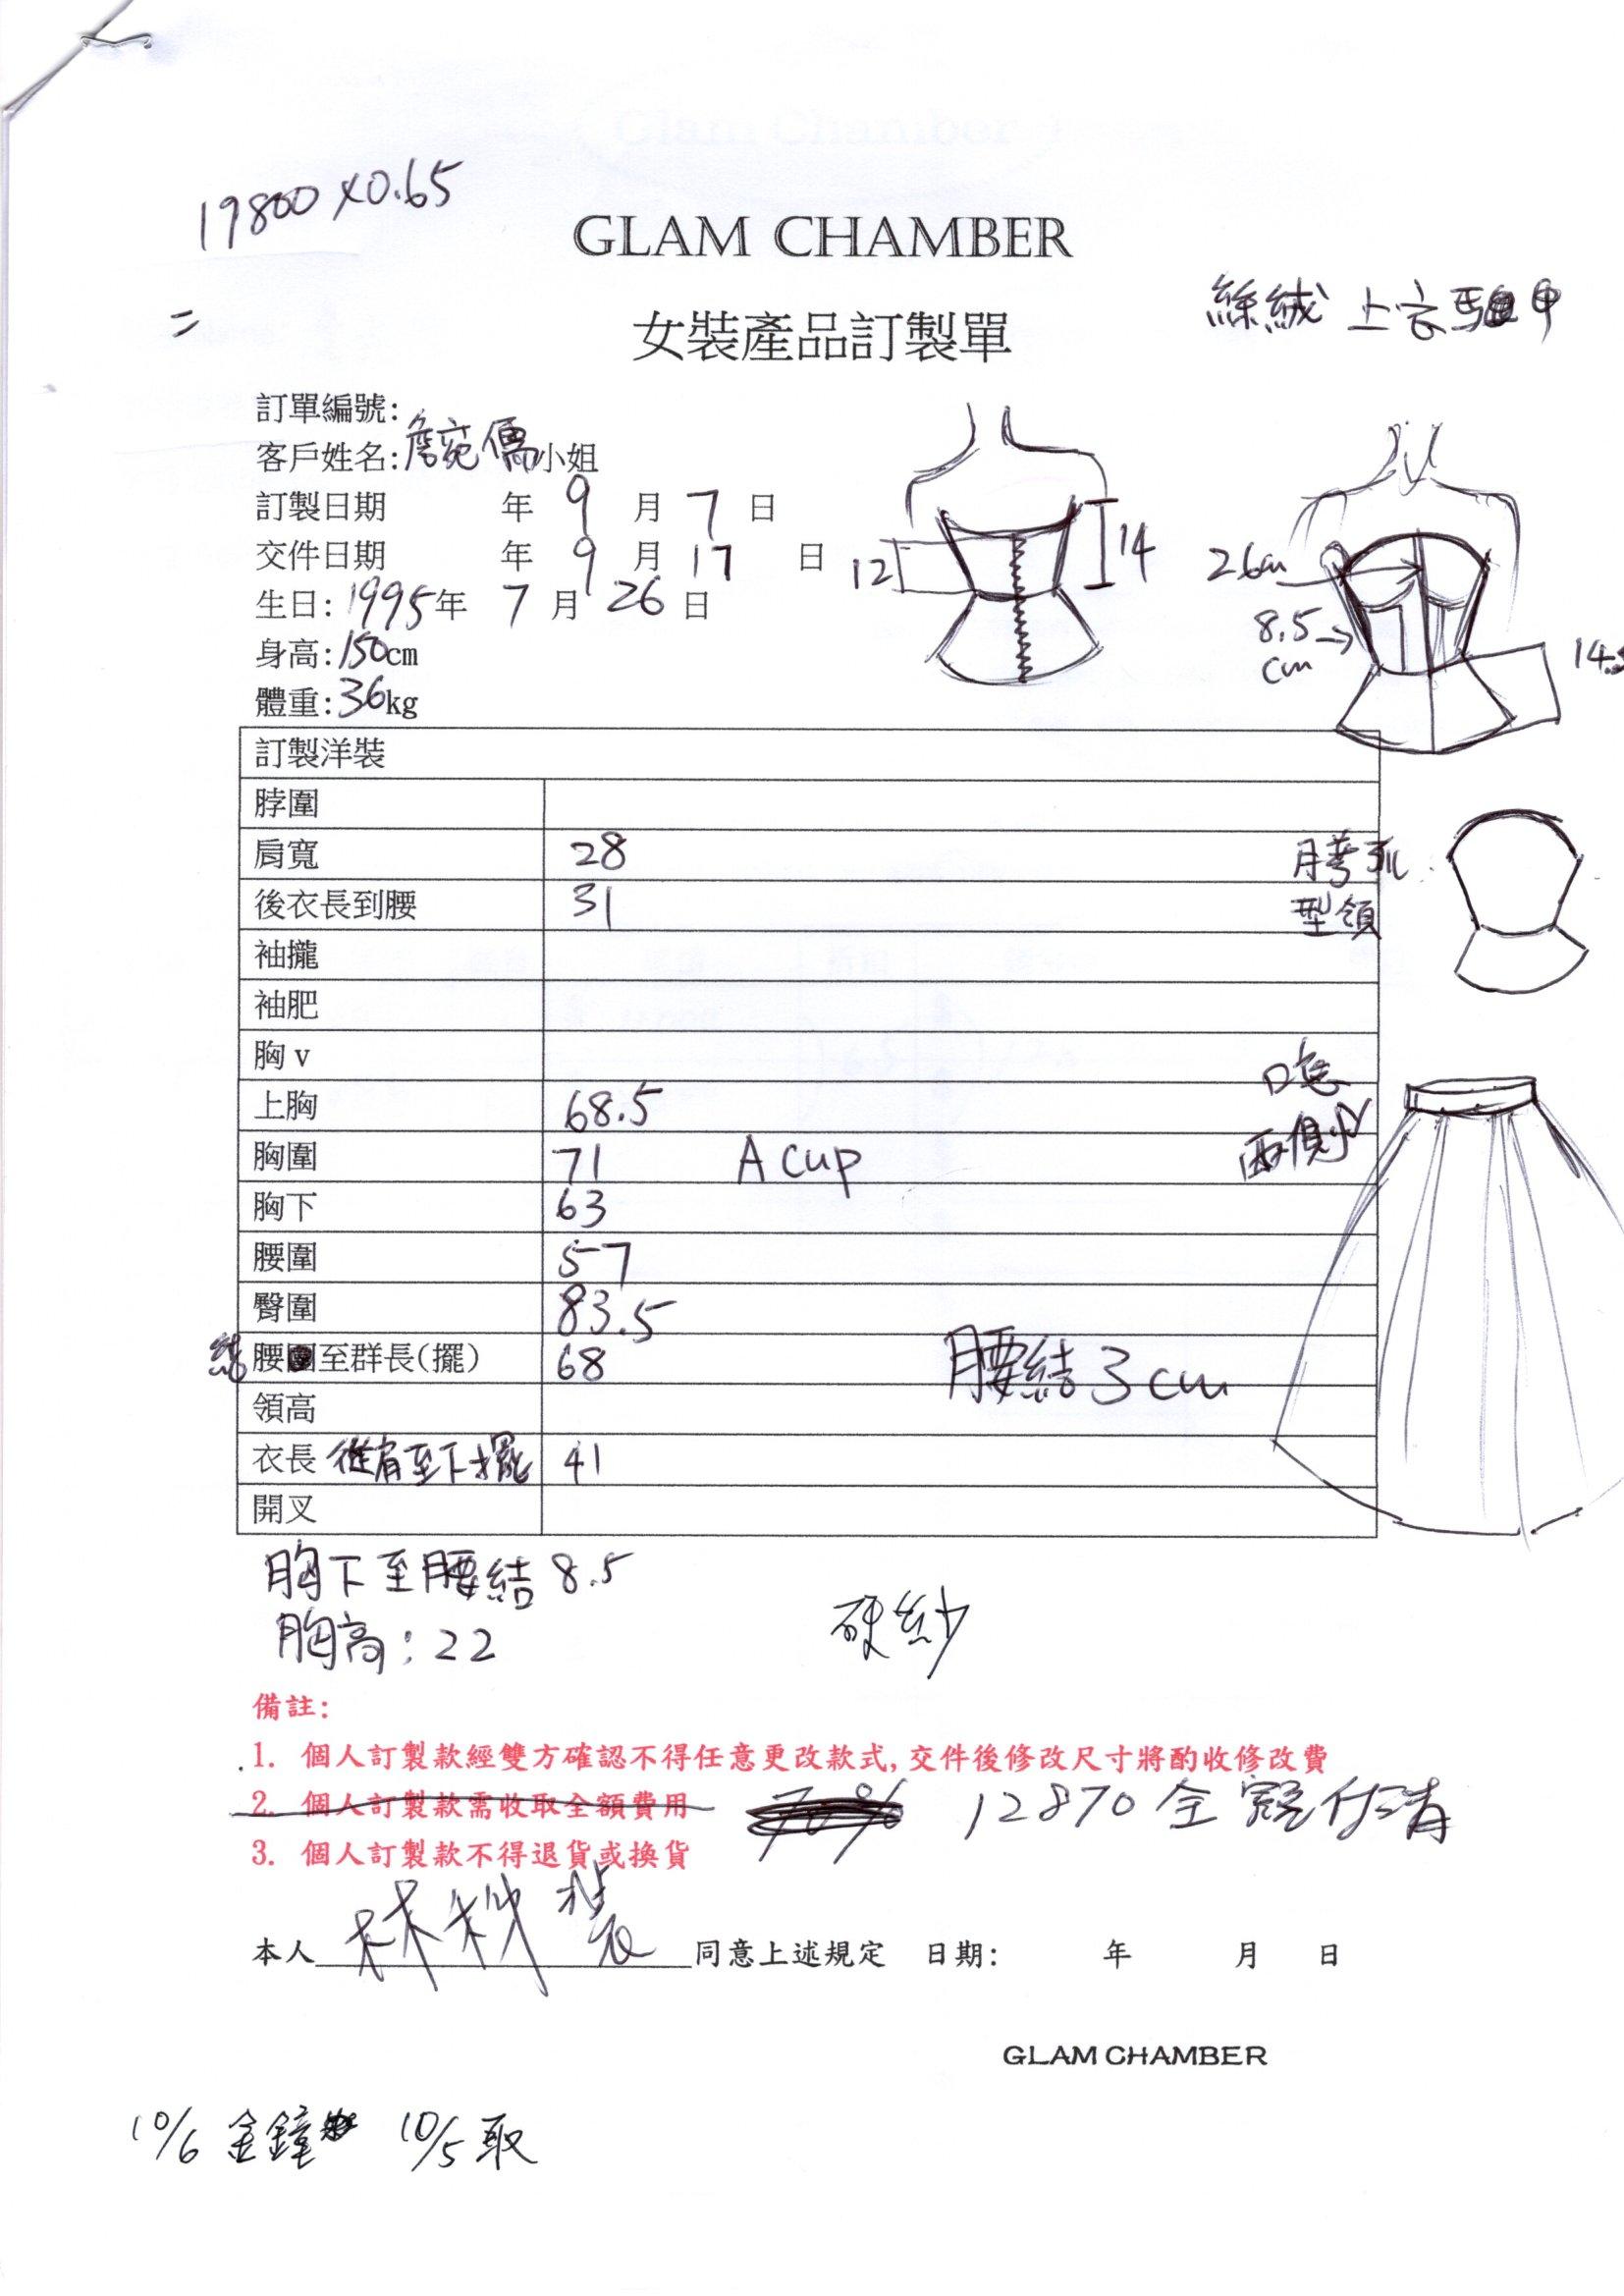 19800 X0.65
GLAM CHAMBER
=
女裝產品訂製單
絲絨 上衣 馬甲
訂單編號:
客戶姓名: 詹宛儒 小姐
訂製日期 年 9 月 7 日
交件日期 年 9 月 17 日
生日: 1995 年 7 月 26 日
身高: 150cm
體重: 36kg
12
14
26cm
8.5
cm
14.5
訂製洋裝
脖圍
肩寬 28
後衣長到腰 31
弧
型領
袖攏
袖肥
胸v
口袋
兩側
上胸 68.5
胸圍 71 A cup
胸下 63
腰圍 57
臀圍 83.5
結 腰至群長(擺) 68
腰結 3cm
領高
衣長 從肩至下擺 41
開叉
胸下至腰結 8.5
胸高: 22
硬紗
備註:
1. 個人訂製款經雙方確認不得任意更改款式,交件後修改尺寸將酌收修改費
2. 個人訂製款需收取全額費用 70% 12870 全額付清
3. 個人訂製款不得退貨或換貨
本人 同意上述規定 日期: 年 月 日
GLAM CHAMBER
10/6 金鐘 10/5 取